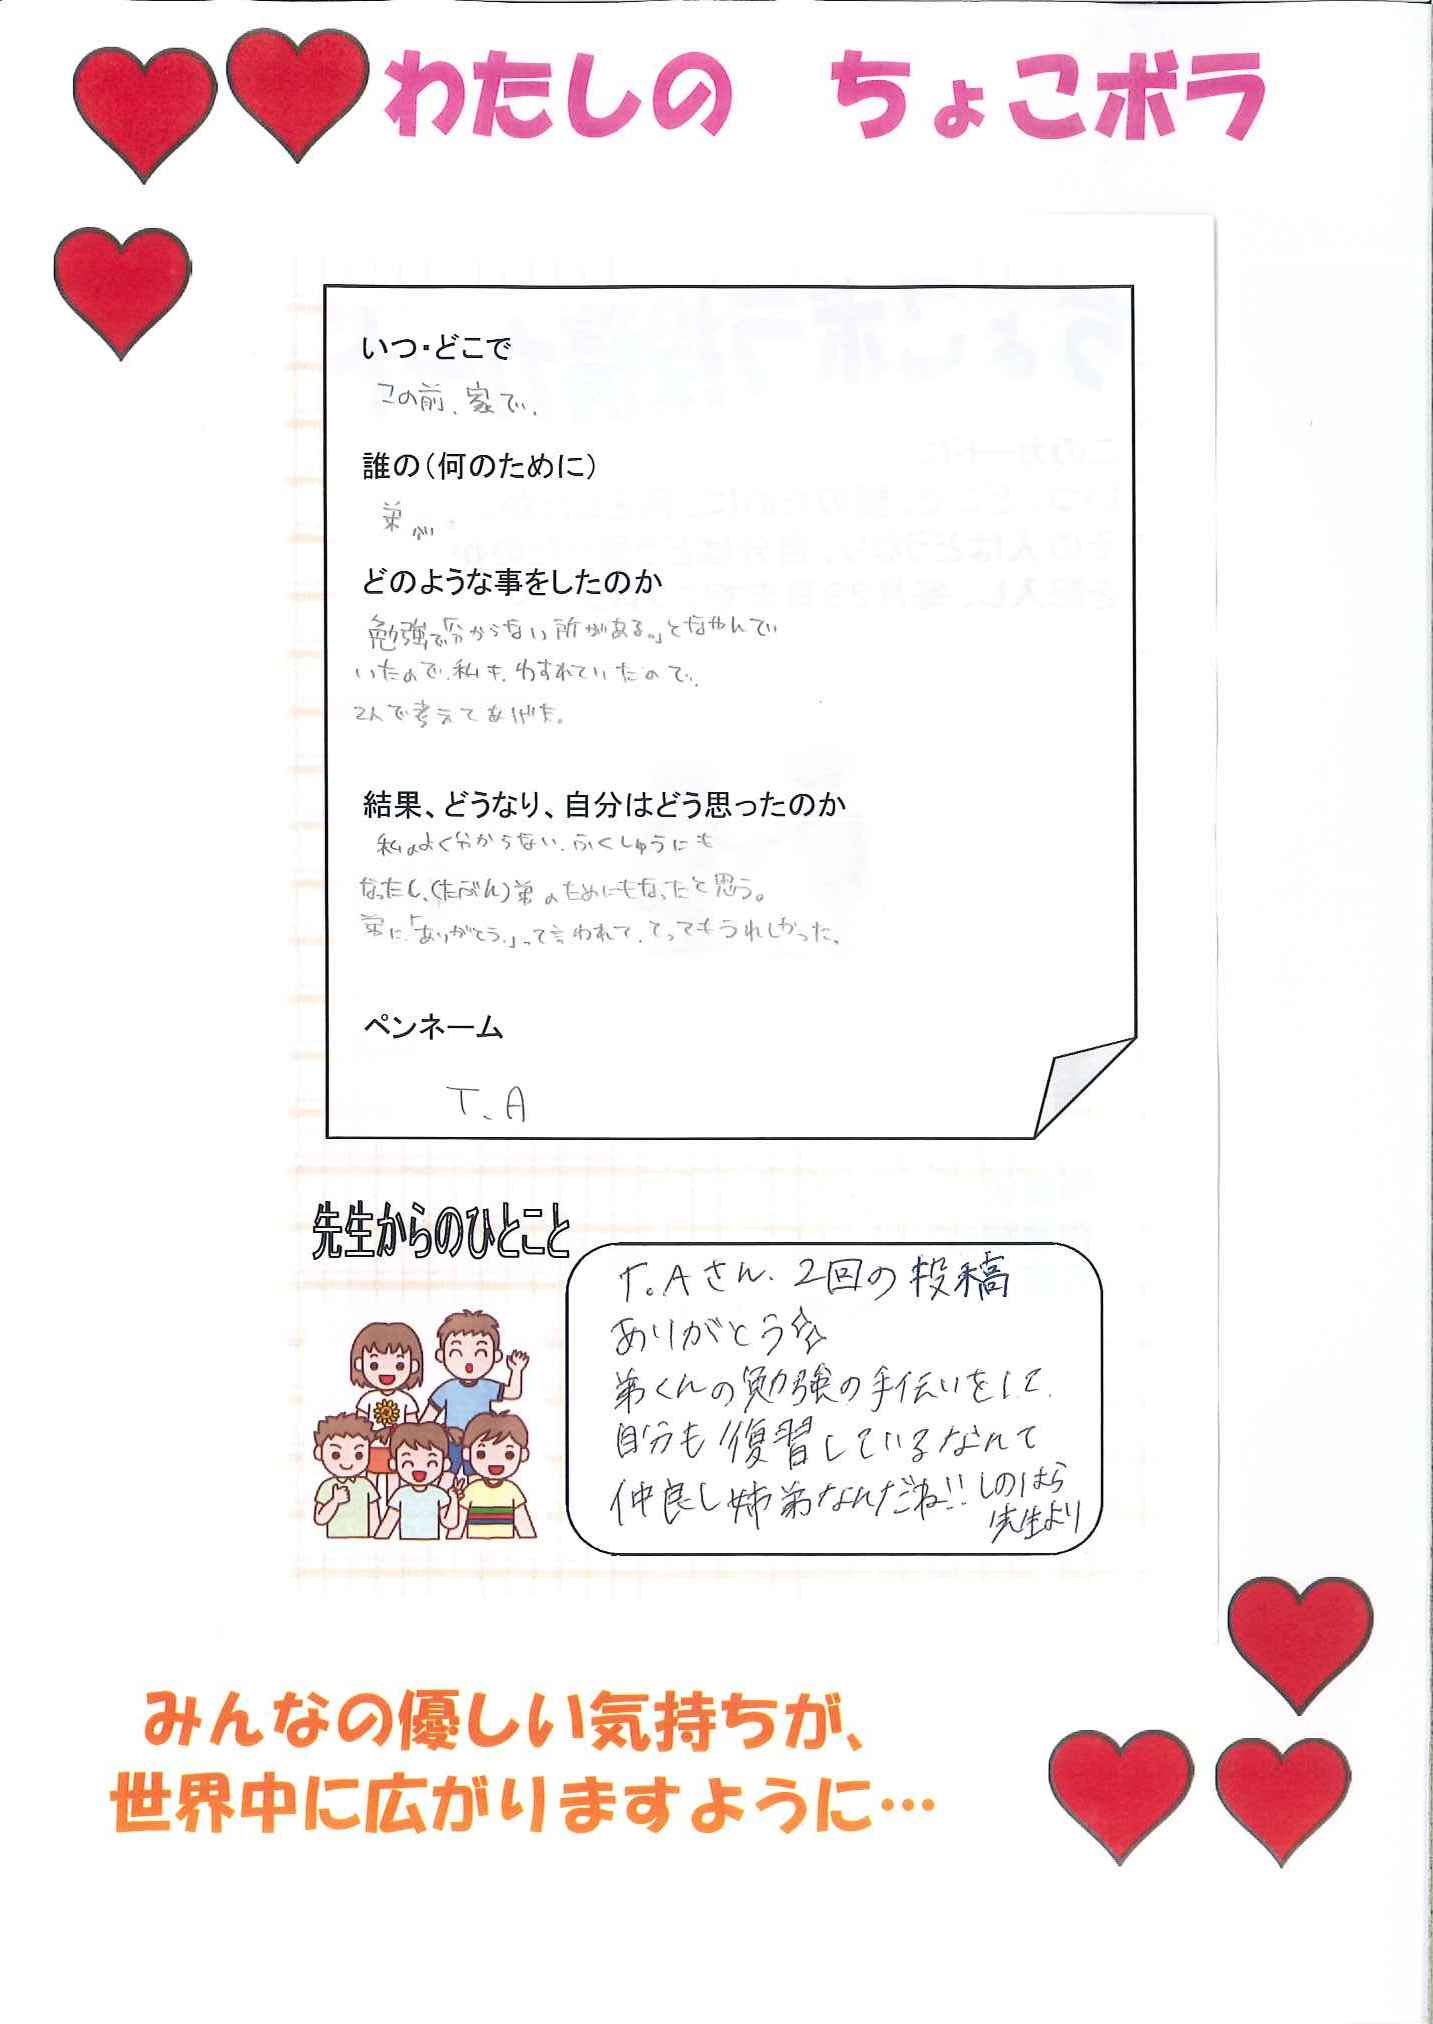 わたしの ちょこボラ
いつ・どこで
この前、家で、
誰の（何のために）
弟が、
どのような事をしたのか
勉強で「分からない所がある。」となやんでい
いたので、私も、わすれていたので、
2人で考えてあげた。
結果、どうなり、自分はどう思ったのか
私のよく分からない、ふくしゅうにも
なったし、(たぶん)弟のためにもなったと思う。
弟に「ありがとう。」って言われて、とってもうれしかった。
ペンネーム
T.A
先生からのひとこと
T.Aさん、2回の投稿
ありがとう☆
弟くんの勉強の手伝いをして、
自分も復習しているなんて
仲良し姉弟なんだね!! しのはら
先生より
みんなの優しい気持ちが、
世界中に広がりますように…